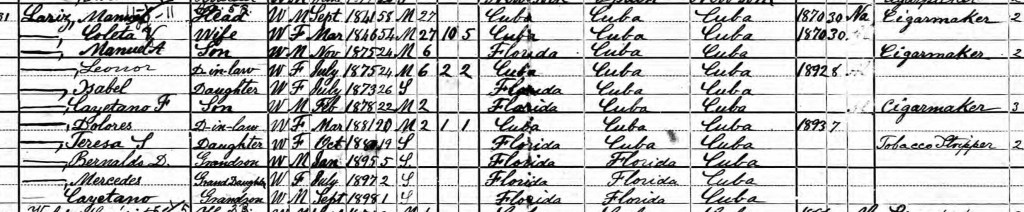 Lariz, Manuel Head W M Sept 1841 58 M 27 Cuba Cuba Cuba 1870 30 Na Cigarmaker 2
—, Coleta V Wife W F Mar 1846 54 M 27 10 5 Cuba Cuba Cuba 1870 30
—, Manuel A Son W M Nov 1875 24 M 6 Florida Cuba Cuba Cigarmaker 2
—, Leonor D-in-law W F July 1875 24 M 6 2 2 Cuba Cuba Cuba 1892 8
—, Isabel Daughter W F July 1873 26 S Florida Cuba Cuba
—, Cayetano F Son W M Feb 1878 22 M 2 Florida Cuba Cuba Cigarmaker 3
—, Dolores D-in-law W F Mar 1881 20 M 2 1 1 Cuba Cuba Cuba 1893 7
—, Teresa S Daughter W F Oct 1880 19 S Florida Cuba Cuba Tobacco Stripper 2
—, Bernaldo D. Grandson W M Jan 1895 5 S Florida Florida Cuba
—, Mercedes Grand Daughter W F July 1897 2 S Florida Florida Cuba
—, Cayetano Grandson W M Sept 1898 1 S Florida Florida Cuba